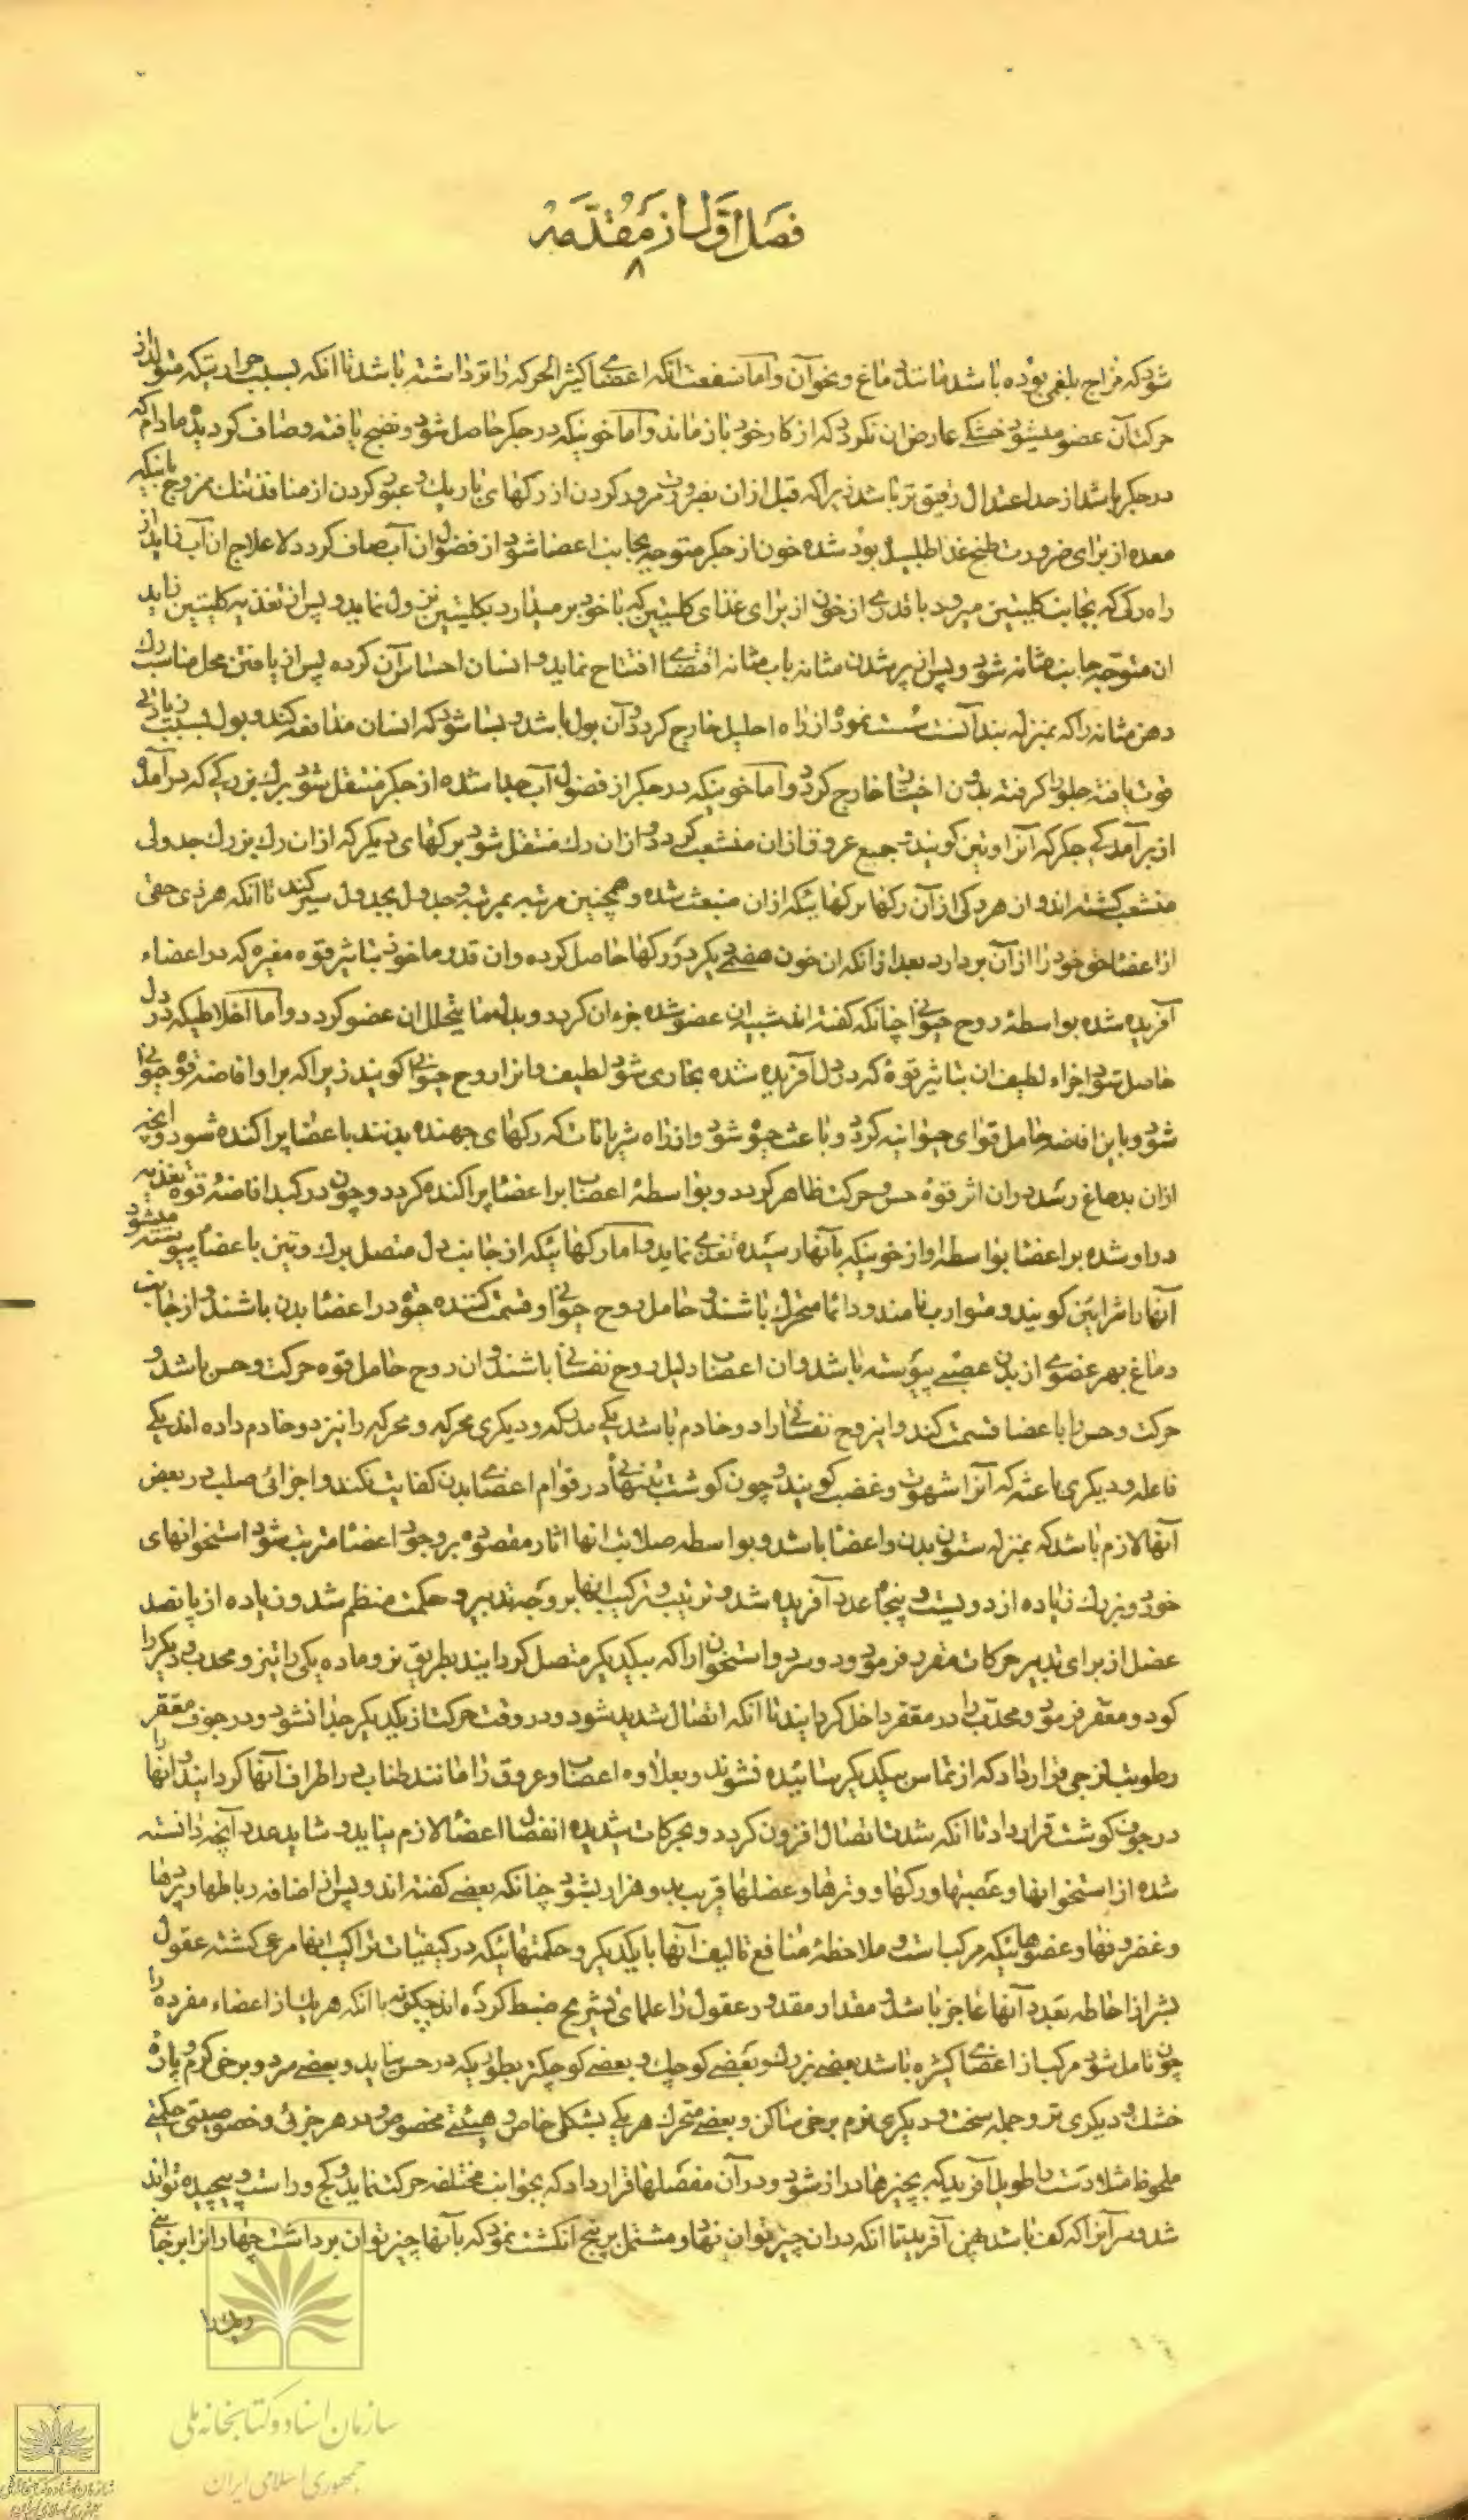 فصل اول از مقدمه
۸
شود که مزاج بلغمی بوده باشد مانند دماغ و نخوآن و اما منفعت آنکه اعضای کثیر الحرکه را تر داشته باشد تا آنکه بسبب حرارتیکه متولد از
حرکت آن عضو میشود خشکی عارض ان نکردد که از کار خود باز ماند و اما خونیکه در جکر حاصل شود و نضج یافته و صاف کردیده مادام که
در جکر باشد از حد اعتدال رقیق تر باشد زیرا که قبل از ان بضرورت مرور کردن از رکهای باریک و عبور کردن از منافذ تنک ممزوج بابیکه
معده از برای ضرورت طبخ غذا طلبیده بود شده خون از جکر متوجه بجانب اعضا شود از فضول ان آب صاف کردد لا علاج ان آب زاید از
راه رکی که بجانب کلیتین میرود با قدری از خون از برای غذای کلیتین که با خود بر میدارد بکلیتین نزول نماید و پس از تغذیه کلیتین زاید
ان متوجه جانب مثانه شود و پس از پر شدن مثانه باب مثانه اقتضای افتتاح نماید و انسان احساس آن کرده پس از یافتن محل مناسب رک
دهن مثانه را که بمنزله بند آنست سست نموده از راه احلیل خارج کردد و آن بول باشد و بسا شود که انسان مدافعه کند و بول بسبب زیادتی
قوت یافته جلو را کرفته بدون اختیار خارج کردد و اما خونیکه در جکر از فضول آب جدا شده از جکر منتقل شود برک بزرکی که در آمده
از برآمدکی جکر که آنرا وتین کویند و جمیع عروق ازان منشعب کردد و ازان رک منتقل شود برکهای دیکر که ازان رک بزرک جدولی
منشعب کشته اند و از هر رکی از آن رکها برکهائیکه ازان منبعث شده و همچنین مرتبه بمرتبه و جدول بجدول سیر کند تا آنکه هر ذی حقی
از اعضا حق خود را از آن بردارد بعد از انکه ان خون هضمی دیکر در رکها حاصل کرده و ان قدر ماخوذ بتاثیر قوه مغیره که در اعضاء
آفریده شده بواسطهٔ روح حیوانی چنانکه کفته اند شبیه ان عضو شده جزء ان کردد و بدل ما یتحلل ان عضو کردد و اما اخلاطیکه در دل
حاصل شود اجزاء لطیف ان بتاثیر قوهٔ که در دل آفریده شده بخاری شود لطیف و انرا روح حیوانی کویند زیرا که بر او افاضه قوه حیوانی
شود و باین افاضه حامل قوای حیوانیه کردد و باعث حیوة شود و از راه شریانات که رکهای جهنده بدنند باعضا پراکنده شود و آنچه
ازان بدماغ رسد دران اثر قوهٔ حس و حرکت ظاهر کردد و بواسطهٔ اعصاب بر اعضا پراکنده کردد و چون در کبد افاضهٔ قوه تغذیه
در او شده بر اعضا بواسطه او از خونیکه بآنها رسیده تغذی نماید و اما رکهائیکه از جانب دل متصل برک وتین باعضا پیوسته میشود
آنها را شرائین کویند و متوارب نامند و دائما متحرک باشند و حامل روح حیوانی و قسمت کننده حیوة در اعضا بدن باشند و از جانب
دماغ بهر عضوی از بدن عصبی پیوسته باشد و ان اعصاب دلیل روح نفسانی باشند و ان روح حامل قوه حرکت و حس باشد و
حرکت و حس را باعضا قسمت کند و این روح نفسانی را دو خادم باشد یکی مدرکه و دیکری محرکه و محرکه را نیز دو خادم داده اند یکی
فاعله و دیکری باعثه که آنرا شهوت و غضب کویند و چون کوشت بتنهائی در قوام اعضای بدن کفایت نکند و اجزائی صلب در بعض
آنها لازم باشد که بمنزله ستون بدن و اعضا باشد و بواسطه صلابت انها اثار مقصوده بر وجود اعضا مترتب شود استخوانهای
خورد و بزرک زیاده از دویست و پنجاه عدد آفریده شد و ترتیب و ترکیب انها بر وجه تدبیر و حکمت منظم شد و زیاده از پانصد
عضل از برای تدبیر حرکات مقرر فرمود و در سر دو استخوان را که بیکدیکر متصل کردانیدند بطریق نر و ماده یکی را تیز و محدب و دیکر را
کود و مقعر فرمود و محدب را در مقعر داخل کردانیدند تا آنکه اتصال شدید شود و در وقت حرکت از یکدیکر جدا نشود و در جوف مقعر
رطوبت لزجی قرار داد که از تماس بیکدیکر سائیده نشوند و بعلاوه اعصاب و عروق را مانند طناب در اطراف آنها کردانید و انها را
در جوف کوشت قرار داد تا آنکه شدت اتصال افزون کردد و بحرکات شدیده انفصال اعضا لازم نیاید و شاید عدد آنچه دانسته
شده از استخوانها و عصبها و رکها و وترها و عضلها قریب بدو هزار بشود چنانکه بعضی کفته اند و پس از اضافه رباطها و پرده‌ها
و غضروفها و عضوهائیکه مرکب است و ملاحظهٔ منافع تالیف آنها با یکدیکر و حکمتهائیکه در کیفیات تراکیب انها مرعی کشته عقول
بشر از احاطه بعدد آنها عاجز باشد و مقدار مقدور عقول را علمای تشریح ضبط کرده اند چکونه با آنکه هر یک از اعضاء مفرده را
چون تامل شود مرکب از اعضای کثیره باشد بعضی بزرک و بعضی کوچک و بعضی کوچکتر بطوریکه در حس نیاید و بعضی سرد و برخی کرم و پارهٔ
خشک و دیکری تر و جمله سخت و دیکری نرم برخی ساکن و بعضی متحرک هر یکی بشکلی خاص و هیئتی مخصوص و در هر جزئی و خصوصیتی حکمتی
ملحوظ مثلا دست را طویل آفرید که بچیزها دراز شود و در آن مفصلها قرار داد که بجوانب مختلفه حرکت نماید و کج و راست و پیچیده تواند
شد و سر آنرا که کف باشد پهن آفرید تا انکه دران چیز توان نهاد و مشتمل بر پنج انکشت نمود که بآنها چیز توان برداشت چهار انرا بر جانبی
و یک را
سازمان اسناد و کتابخانه ملی
جمهوری اسلامی ایران